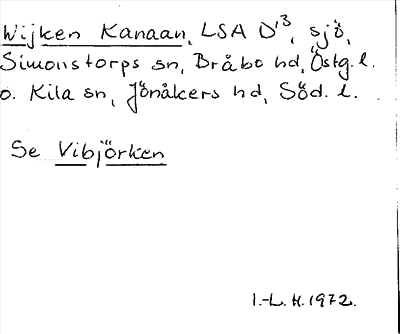 Wijken Kanaan, LSA D'³, sjö,
Simonstorps sn, Bråbo hd, Östg. l.
o. Kila sn, Jönåkers hd, Söd. l.
Se Vibjörken
I.-L. H. 1972.